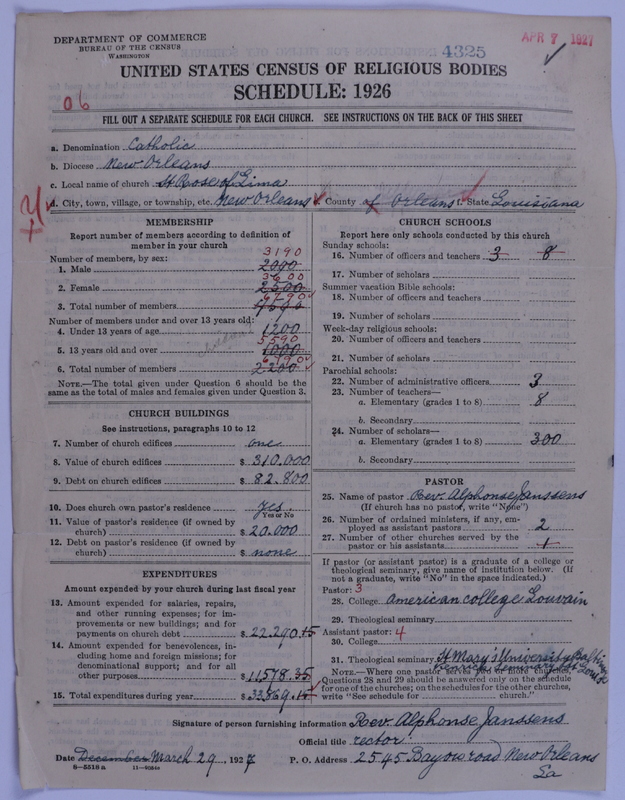 DEPARTMENT OF COMMERCE
BUREAU OF THE CENSUS
WASHINGTON
4325
APR 7 1927
UNITED STATES CENSUS OF RELIGIOUS BODIES
SCHEDULE: 1926
06
FILL OUT A SEPARATE SCHEDULE FOR EACH CHURCH. SEE INSTRUCTIONS ON THE BACK OF THIS SHEET
a. Denomination Catholic
b. Diocese New Orleans
c. Local name of church St Rose of Lima
d. City, town, village, or township, etc. New Orleans County of Orleans State Louisiana
MEMBERSHIP
Report number of members according to definition of
member in your church
Number of members, by sex:
3190
1. Male 2000
3600
2. Female 2500
6790
3. Total number of members
Number of members under and over 13 years old:
4. Under 13 years of age 1200
5590
5. 13 years old and over 1000
6790
6. Total number of members 2200
NOTE.—The total given under Question 6 should be the
same as the total of males and females given under Question 3.
CHURCH BUILDINGS
See instructions, paragraphs 10 to 12
7. Number of church edifices one
8. Value of church edifices $ 310.000
9. Debt on church edifices $ 82.800
10. Does church own pastor's residence yes
Yes or No
11. Value of pastor's residence (if owned by
church) $ 20.000
12. Debt on pastor's residence (if owned by
church) $ none
EXPENDITURES
Amount expended by your church during last fiscal year
13. Amount expended for salaries, repairs,
and other running expenses; for im-
provements or new buildings; and for
payments on church debt $ 22.290.15
14. Amount expended for benevolences, in-
cluding home and foreign missions; for
denominational support; and for all
other purposes $ 11,578.35
15. Total expenditures during year $ 33.869.15
CHURCH SCHOOLS
Report here only schools conducted by this church
Sunday schools:
16. Number of officers and teachers 3 8
17. Number of scholars
Summer vacation Bible schools:
18. Number of officers and teachers
19. Number of scholars
Week-day religious schools:
20. Number of officers and teachers
21. Number of scholars
Parochial schools:
22. Number of administrative officers 3
23. Number of teachers—
a. Elementary (grades 1 to 8) 8
b. Secondary
24. Number of scholars—
a. Elementary (grades 1 to 8) 300
b. Secondary
PASTOR
25. Name of pastor Rev. Alphonse Janssens
(If church has no pastor, write "None")
26. Number of ordained ministers, if any, em-
ployed as assistant pastors 2
27. Number of other churches served by the
pastor or his assistants 1
If pastor (or assistant pastor) is a graduate of a college or
theological seminary, give name of institution below. (If
not a graduate, write "No" in the space indicated.)
Pastor: 3
28. College American College Louvain
29. Theological seminary
Assistant pastor: 4
30. College
31. Theological seminary St Mary's University
NOTE.—Where one pastor serves two or more churches,
Questions 28 and 29 should be answered only on the schedule
for one of the churches; on the schedules for the other churches,
write "See schedule for church."
Signature of person furnishing information Rev. Alphonse Janssens
Official title rector
Date December March 29, 1927 P. O. Address 2545 Bayou road New Orleans
La
6—5518 a